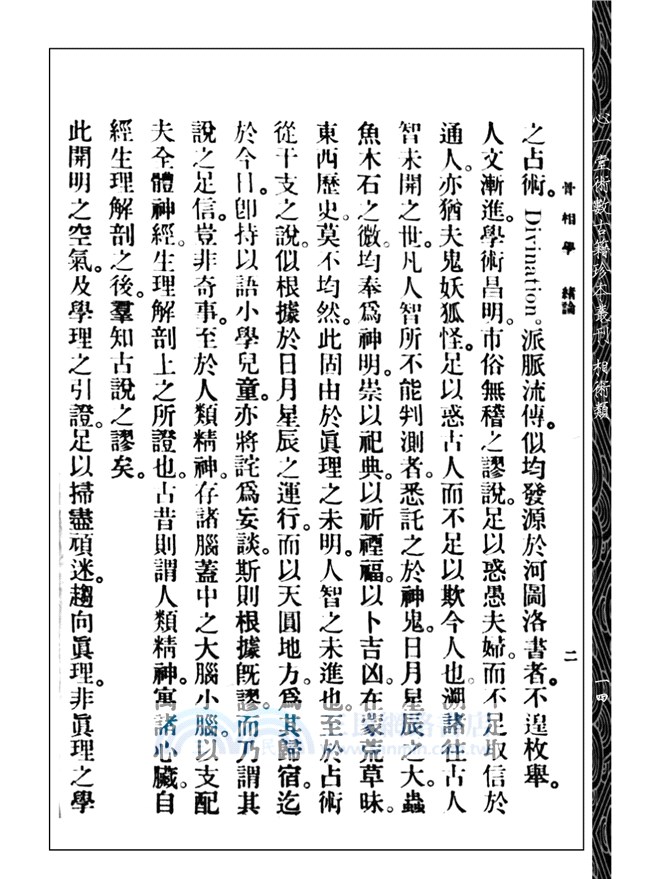 心一堂術數古籍珍本叢刊 相術類
一四
骨相學 緒論
二
之占術。Divination。派脈流傳。似均發源於河圖洛書者。不遑枚舉。
人文漸進。學術昌明。市俗無稽之謬說。足以惑愚夫婦。而不足取信於
通人。亦猶夫鬼妖狐怪。足以惑古人而不足以欺今人也。溯諸往古人
智未開之世。凡人智所不能判測者。悉託之於神鬼。日月星辰之大。蟲
魚木石之微。均奉爲神明。崇以祀典。以祈禋福。以卜吉凶。在蒙荒草昧。
東西歷史。莫不均然。此固由於眞理之未明。人智之未進也。至於占術
從干支之說。似根據於日月星辰之運行。而以天圓地方。爲其歸宿。迄
於今日。卽持以語小學兒童。亦將詫爲妄談。斯則根據旣謬。而乃謂其
說之足信。豈非奇事。至於人類精神。存諸腦蓋中之大腦小腦。以支配
夫全體神經。生理解剖上之所證也。占昔則謂人類精神。寓諸心臟。自
經生理解剖之後。羣知古說之謬矣。
此開明之空氣。及學理之引證。足以掃盡頑迷。趨向眞理。非眞理之學